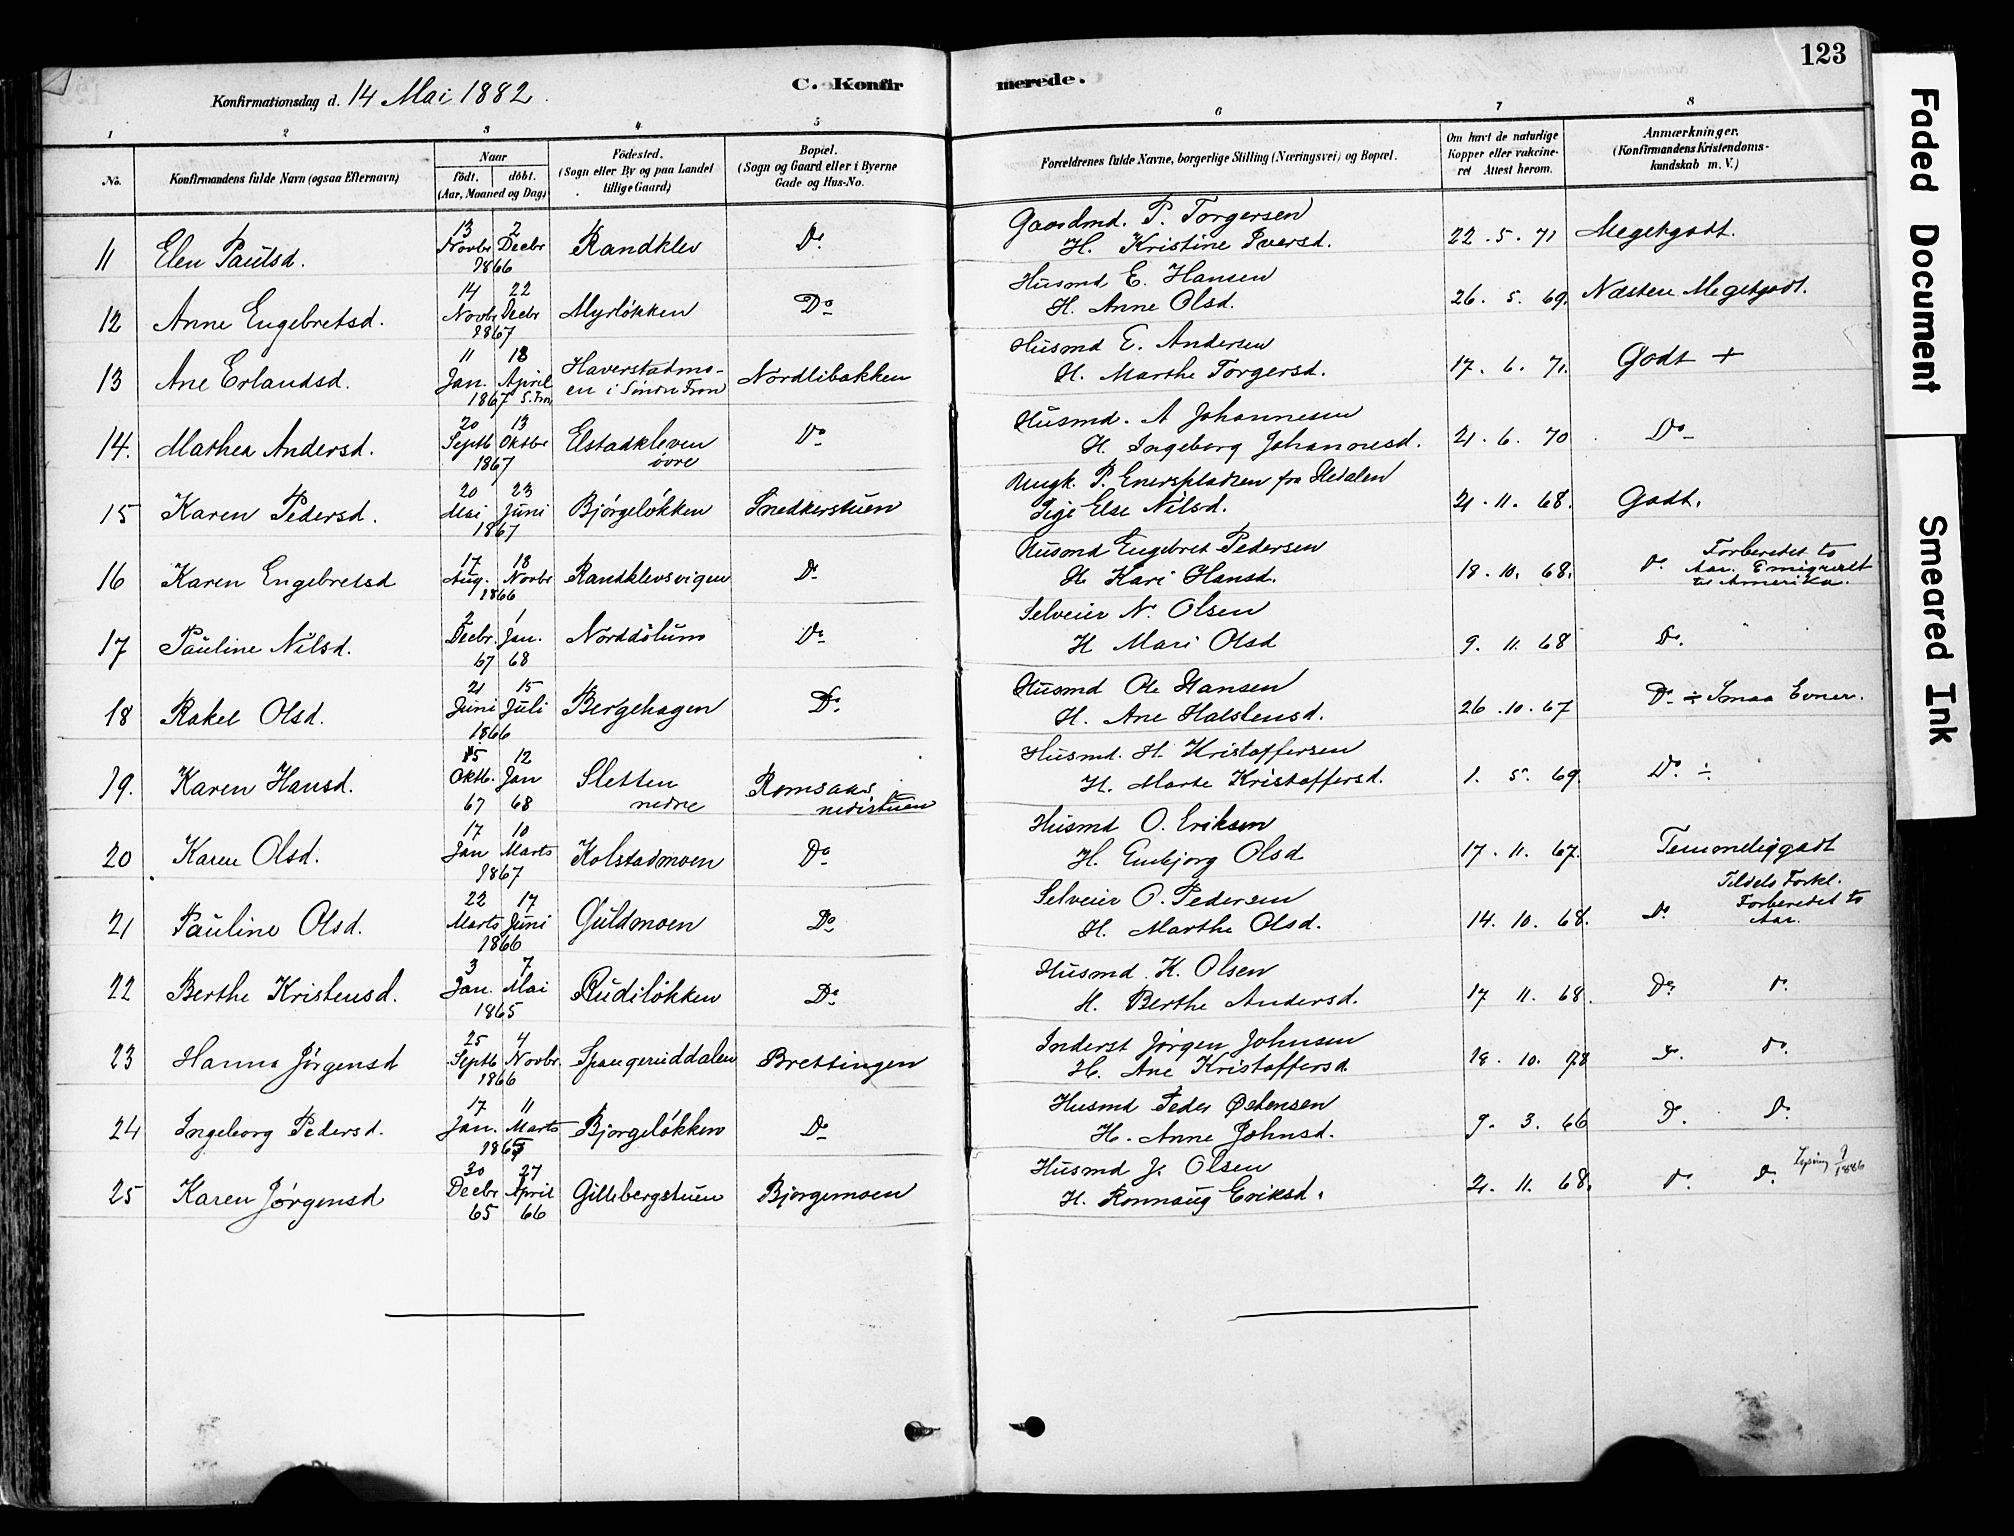 123
Konfirmationsdag d. 14 Mai 1882.
C. Konfirmerede.
1 2 3 4 5 6 7 8
No. Konfirmandens fulde Navn (ogsaa Efternavn) Naar födt. döbt. (Aar, Maaned og Dag) Födested. (Sogn eller By og paa Landet tillige Gaard) Bopæl. (Sogn og Gaard eller i Byerne Gade og Hus-No. Forældrenes fulde Navne, borgerlige Stilling (Næringsvei) og Bopæl. Om havt de naturlige Kopper eller vakcineret Attest herom. Anmærkninger. (Konfirmandens Kristendomskundskab m. V.)
11 Elen Paulsd. 13 Novbr 2 Decbr 1866 Randklev Do Gaardmd. P. Torgersen H. Kristine Iversd. 22. 5. 71 Megetgodt.
12 Anne Engebretsd. 14 Novbr 22 Decbr 1867 Myrløkken Do Husmd E. Hansen H. Anne Olsd. 26. 5. 69. Næsten Megetgodt.
13 Ane Erlandsd. 11 Jan. 18 April 1867 S. Fron Haverstadmoen i Söndr Fron Nordlibakken Husmd E. Andersen H. Marthe Torgersd. 17. 6. 71. Godt +
14. Mathea Andersd. 20 Septb 13 Oktbr 1867 Elstadkleven övre Do Husmd. A Johannesen H. Ingeborg Johannesd. 21. 6. 70 Do
15 Karen Pedersd. 20 Mai 23 Juni 1867 Bjørgeløkken Snedkerstuen Ungk. P. Enerspladsen fra Hedalen Pige Else Nilsd. 21. 11. 68. Godt.
16 Karen Engebretsd 17 Aug. 18 Novbr 1866 Randklevsvigen Do Husmd Engebret Pedersen H. Kari Hansd. 18. 10. 68. Do Forberedet to Aar. Emigreret til Amerika.
17 Pauline Nilsd. 2 Decbr. 1 Jan. 67 68 Norddølum Do Selveier N. Olsen H Mari Olsd 9. 11. 68 Do
18 Rakel Olsd. 21 Juni 15 Juli 1866 Bergehagen Do Husmd Ole Hansen H. Ane Halstensd. 26. 10. 67 Do ÷ Smaa Evner.
19. Karen Hansd. 15 Oktb. 12 Jan 67 68 Sletten nedre Romsaas nedistuen Husmd. H. Kristoffersen H. Marte Kristoffersd. 1. 5. 69. Do ÷
20 Karen Olsd. 17 Jan 10 Marts 1867 Kolstadmoen Do Husmd O. Eriksen H. Embjorg Olsd 17. 11. 67. Temmeliggodt
21 Pauline Olsd. 22 Marts 17 Juni 1866 Guldmoen Do Selveier O. Pedersen H. Marthe Olsd. 14. 10. 68. Do Tildels Forkl. Forberedet to Aar.
22 Berthe Kristensd. 3 Jan. 7 Mai 1865 Rudiløkken Do Husmd K. Olsen H. Berthe Andersd. 17 11. 68. Do Do
23 Hanna Jørgensd 25 Septb 4 Novbr. 1866 Spangruddalen Brettingen Inderst Jørgen Johnsen H. Ane Kristoffersd. 18. 10. 78 Do Do
24 Ingeborg Pedersd. 17 Jan. 11 Marts 1865 Bjørgeløkken Do Husmd Peder Østensen H. Anne Johnsd. 9. 3. 66 Do Do
25 Karen Jørgensd 30 Decbr 27 April 65 66 Gillebergstuen Bjørgemoen Husmd J. Olsen H. Ronnaug Eriksd. 21. 11. 68. Do Do 1886
Faded Document
Smeared Ink